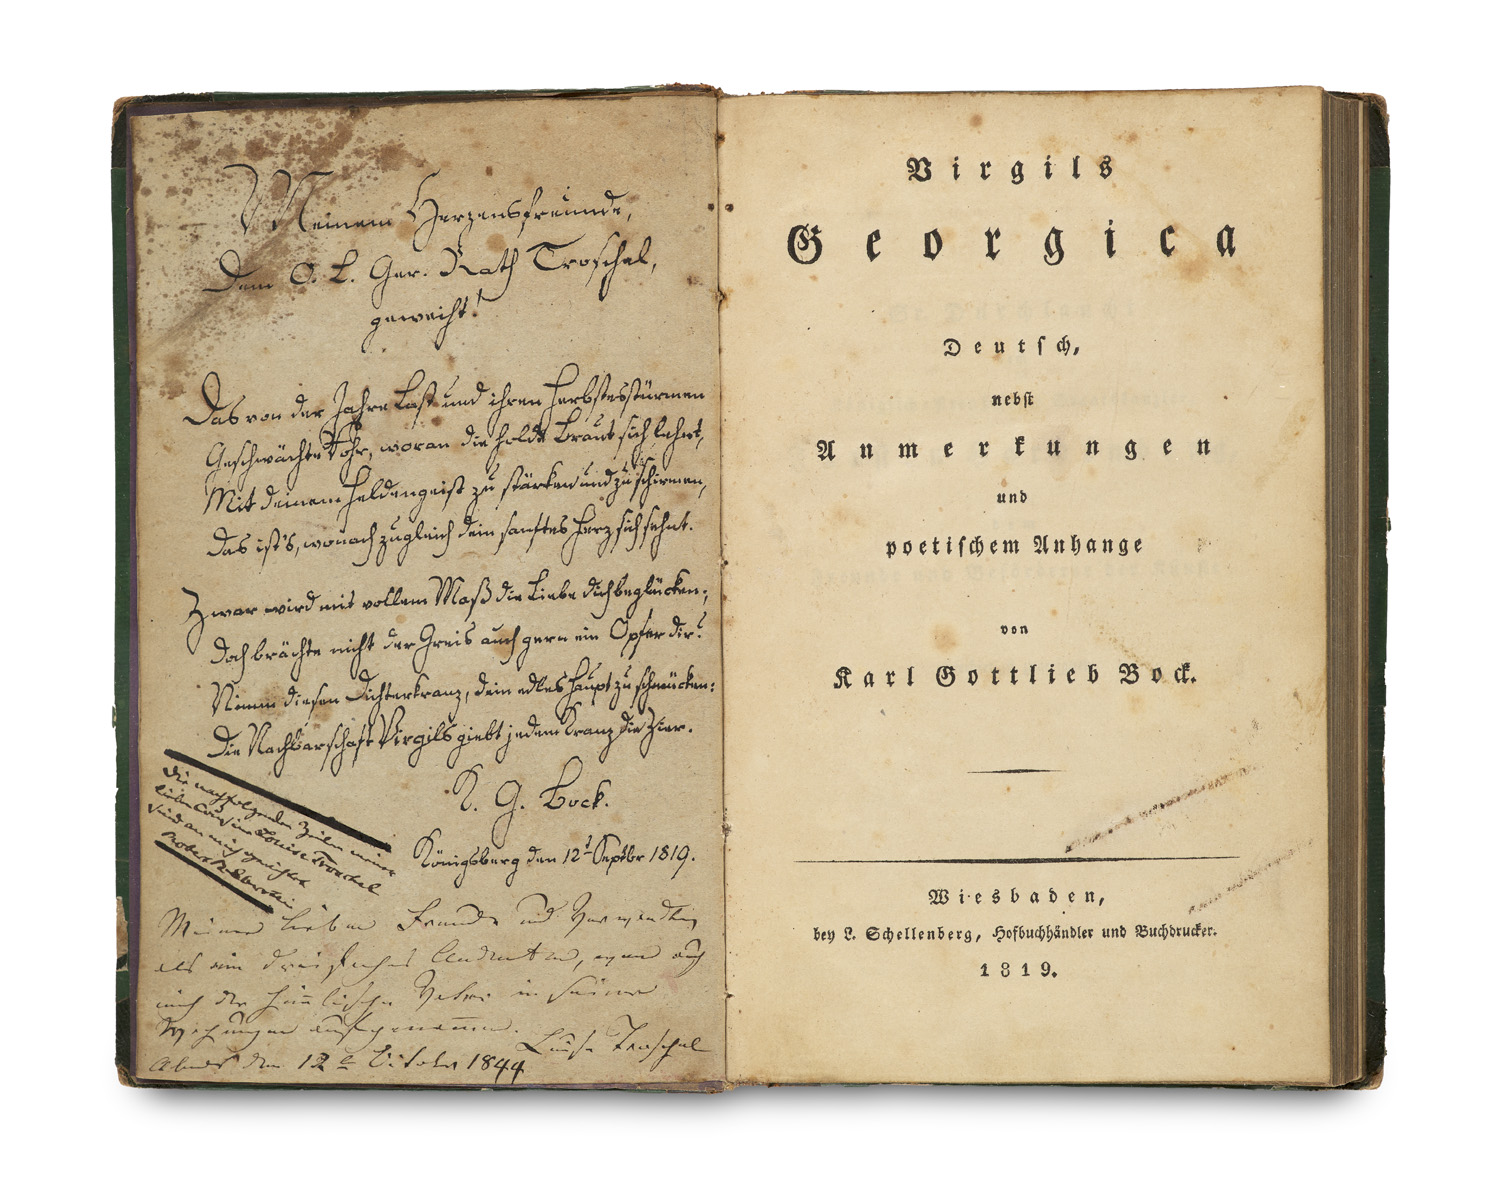 Meinem Herzensfreunde,
Dem O. L. Ger. Rath Troschel,
geweiht!
Das von der Jahre Last und ihren Herbstesstürmen
Geschwächte Rohr, woran die holde Braut sich lehnt,
Mit deinem Heldengeist zu stärken und zu schirmen,
Das ist's, wonach zugleich dein sanftes Herz sich sehnt.
Zwar wird mit vollem Maß die Liebe dich beglücken;
Doch brächte nicht der Greis auch gern ein Opfer dir?
Nimm diesen Dichterkranz, dein edles Haupt zu schmücken:
Die Nachbarschaft Virgils giebt jedem Kranz die Zier.
K. G. Bock.
Königsberg den 12t Septbr 1819.
Die nachfolgenden Zeilen meiner
lieben Cousine Louise Troschel
sind an mich gerichtet
Robert
Meinem lieben Freunde und Verwandten
als ein dreifaches Andenken, von
auch der himmlische Vater in seine
Wohnungen aufgenommen.
Luise Troschel
den 12 October 1844
Virgils
Georgica
Deutsch,
nebst
Anmerkungen
und
poetischem Anhange
von
Karl Gottlieb Bock.
Wiesbaden,
bey L. Schellenberg, Hofbuchhändler und Buchdrucker.
1819.